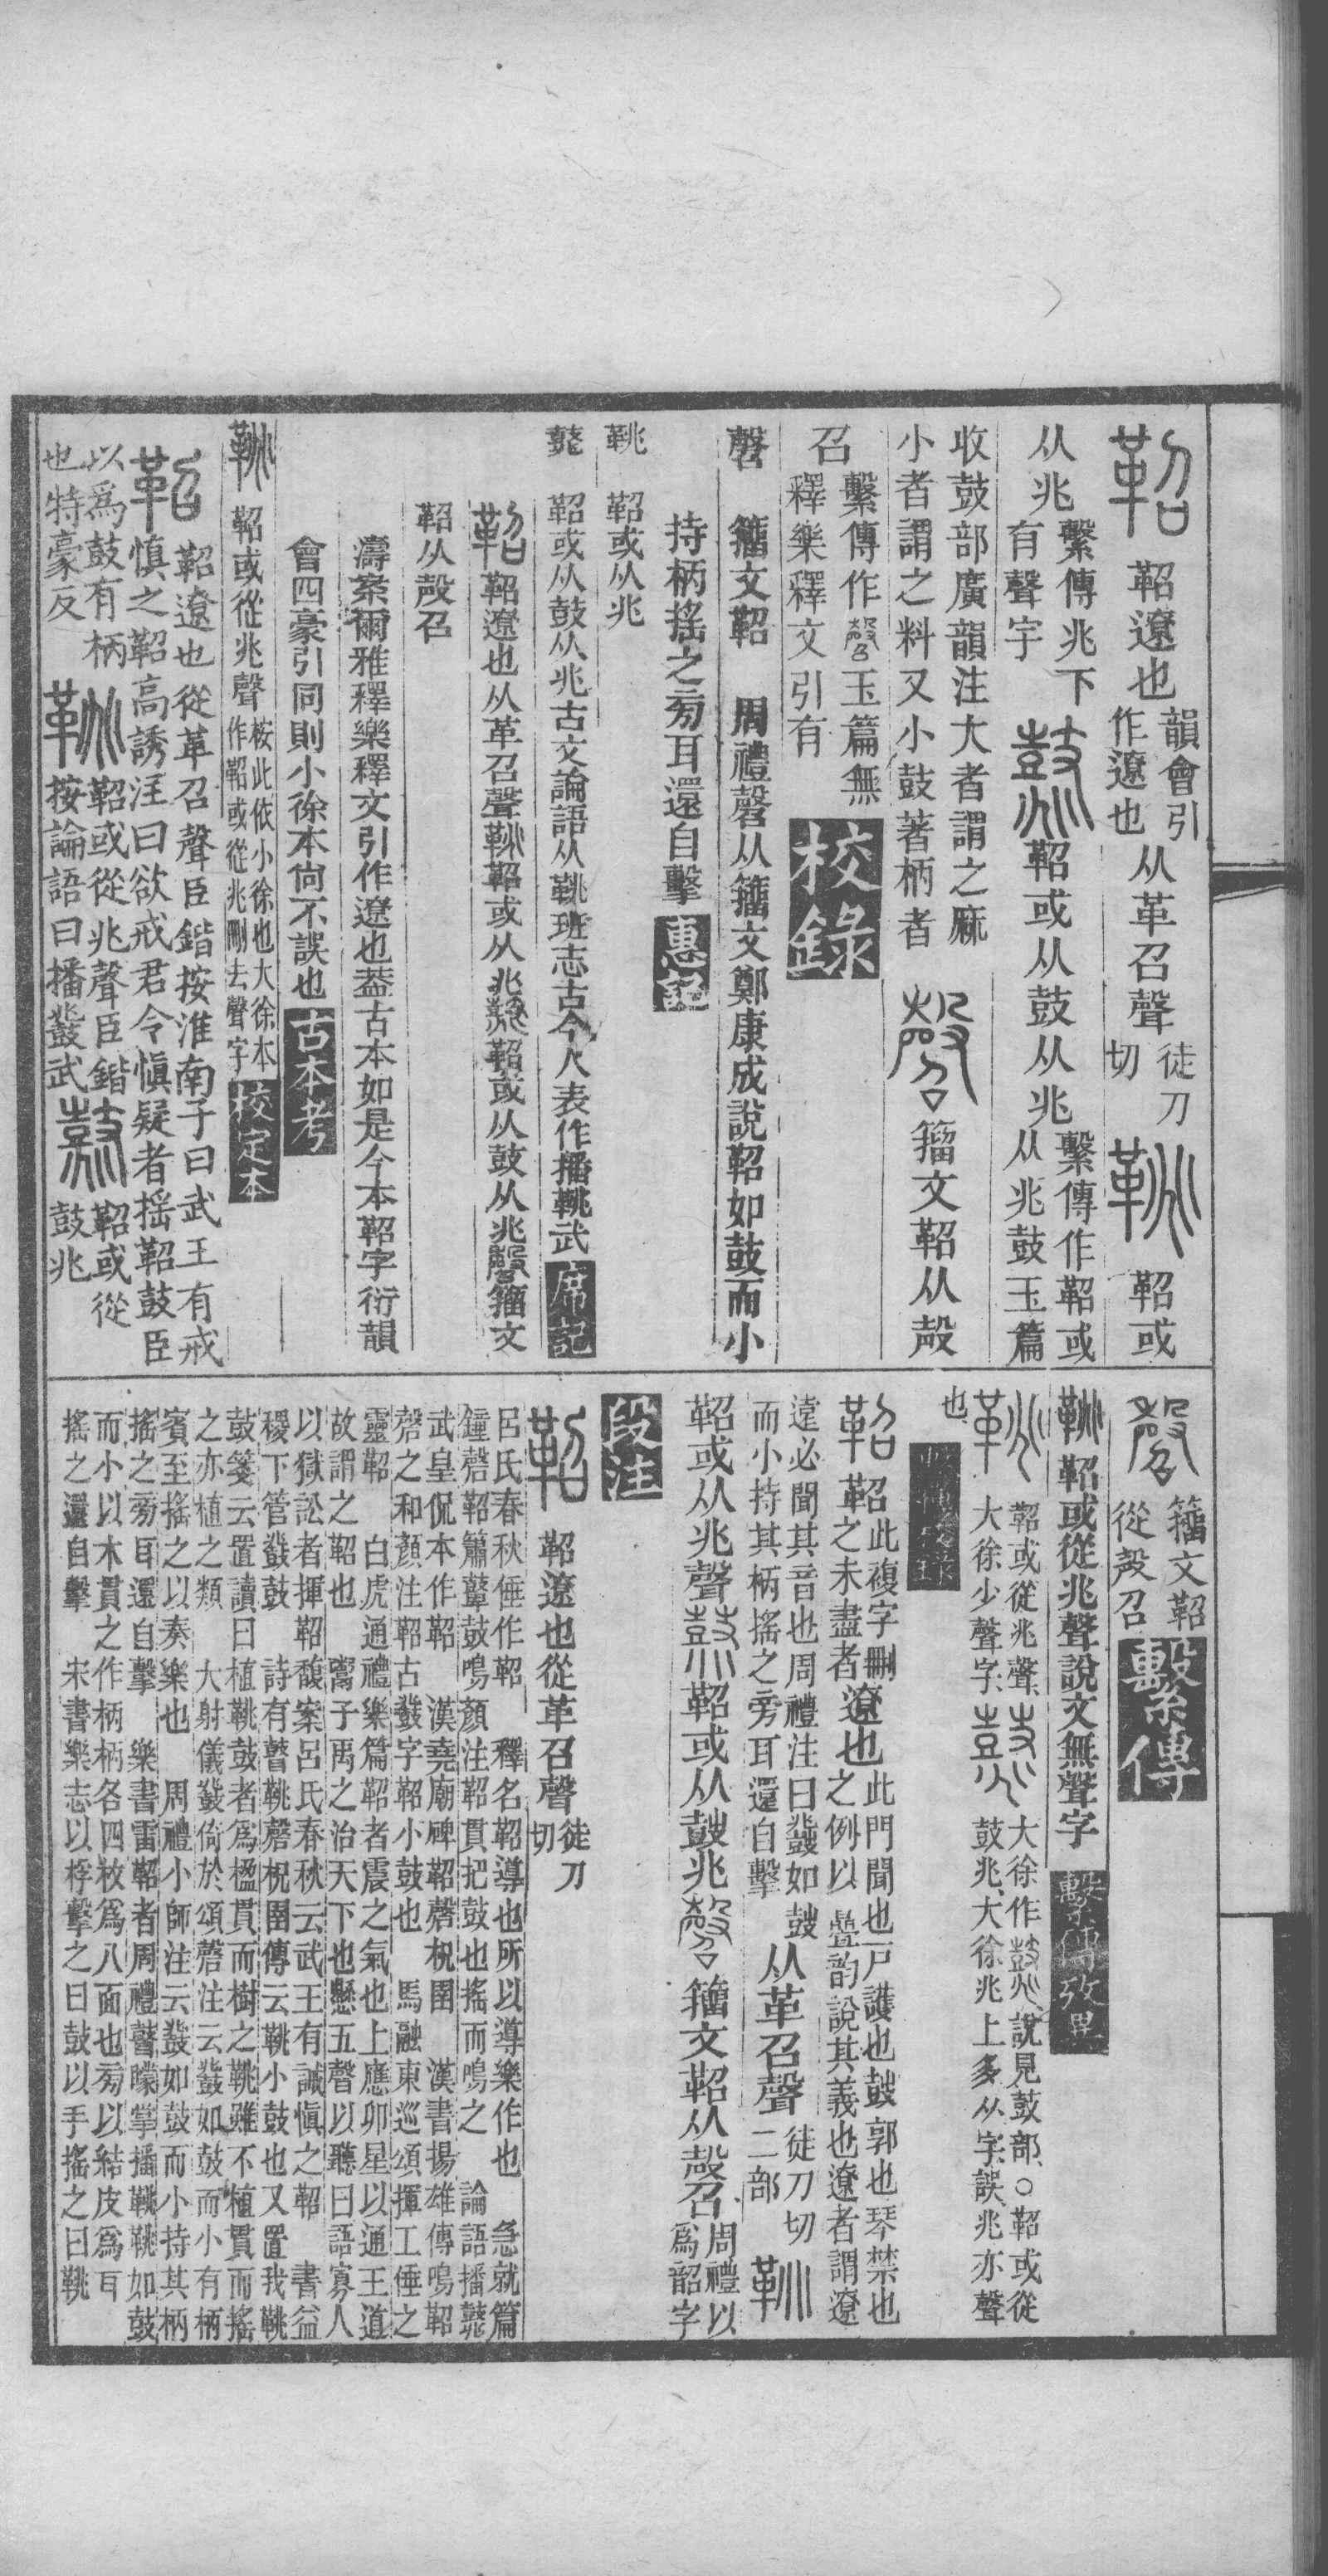 鞀 鞀遼也韻會引作遼也从革召聲徒刀切 鞉 鞀或
从兆繫傳兆下有聲字 鼗 鞀或从鼓从兆繫傳作鞀或从兆鼓玉篇
收鼓部廣韻注大者謂之麻小者謂之料又小鼓著柄者 磬 籒文鞀从殸
召繫傳作磬玉篇無釋樂釋文引有 校錄
磬 籒文鞀 周禮磬从籒文鄭康成說鞀如鼓而小
持柄搖之㫄耳還自擊 惠記
鞉 鞀或从兆
鼗 鞀或从鼓从兆古文論語从鞉班志古今人表作播鞉武 席記
鞀 鞀遼也从革召聲鞉鞀或从兆鼗鞀或从鼓从兆磬籒文
鞀从殸召
濤案爾雅釋樂釋文引作遼也葢古本如是今本鞀字衍韻
會四豪引同則小徐本尙不誤也 古本考
鞉 鞀或從兆聲按此依小徐也大徐本作鞀或從兆刪去聲字 校定本
鞀 鞀遼也從革召聲臣鍇按淮南子曰武王有戒
慎之鞀高誘注曰欲戒君令慎疑者搖鞀鼓臣
以爲鼓有柄也特豪反 鞉 鞀或從兆聲臣鍇按論語曰播鼗武 鼗 鞀或從鼓兆
磬 籒文鞀從殸召 繫傳
鞉 鞀或從兆聲說文無聲字 繫傳攷異
鞉 鞀或從兆聲大徐少聲字 鼗 大徐作鼗說見鼓部○鞀或從鼓兆大徐兆上多从字誤兆亦聲
也
鞀 鞀此複字刪之未盡者遼也此門聞也戶護也鼓郭也琴禁也之例以疊韵說其義也遼者謂遼
遠必聞其音也周禮注曰鼗如鼓而小持其柄搖之旁耳還自擊从革召聲徒刀切二部 鞉
鞀或从兆聲 鼗 鞀或从鼓兆 磬 籒文鞀从殸召周禮以爲韶字
段注
鞀 鞀遼也從革召聲徒刀切
呂氏春秋倕作鞀 釋名鞀導也所以導樂作也 急就篇
鐘磬鞀簫鼙鼓鳴顏注鞀貫把鼓也搖而鳴之 論語播鼗
武皇侃本作鞀 漢堯廟碑鞀磬柷圉 漢書揚雄傳鳴鞀
磬之和顏注鞀古鼗字鞀小鼓也 馬融東巡頌揮工倕之
靈鞀 白虎通禮樂篇鞀者震之氣也上應卯星以通王道
故謂之鞀也 鬻子禹之治天下也懸五聲以聽曰語寡人
以獄訟者揮鞀馥案呂氏春秋云武王有誡慎之鞀 書益
稷下管鼗鼓 詩有瞽鞉磬柷圉傳云鞉小鼓也又置我鞉
鼓箋云置讀曰植鞉鼓者爲楹貫而樹之鞉雖不植貫而搖
之亦植之類 大射儀鼗倚於頌磬注云鼗如鼓而小有柄
賓至搖之以奏樂也 周禮小師注云鼗如鼓而小持其柄
搖之㫄耳還自擊 樂書雷鞀者周禮瞽矇掌播鞉鞉如鼓
而小以木貫之作柄柄各四枚爲八面也㫄以結皮爲耳
搖之還自擊 宋書樂志以桴擊之曰鼓以手搖之曰鞉